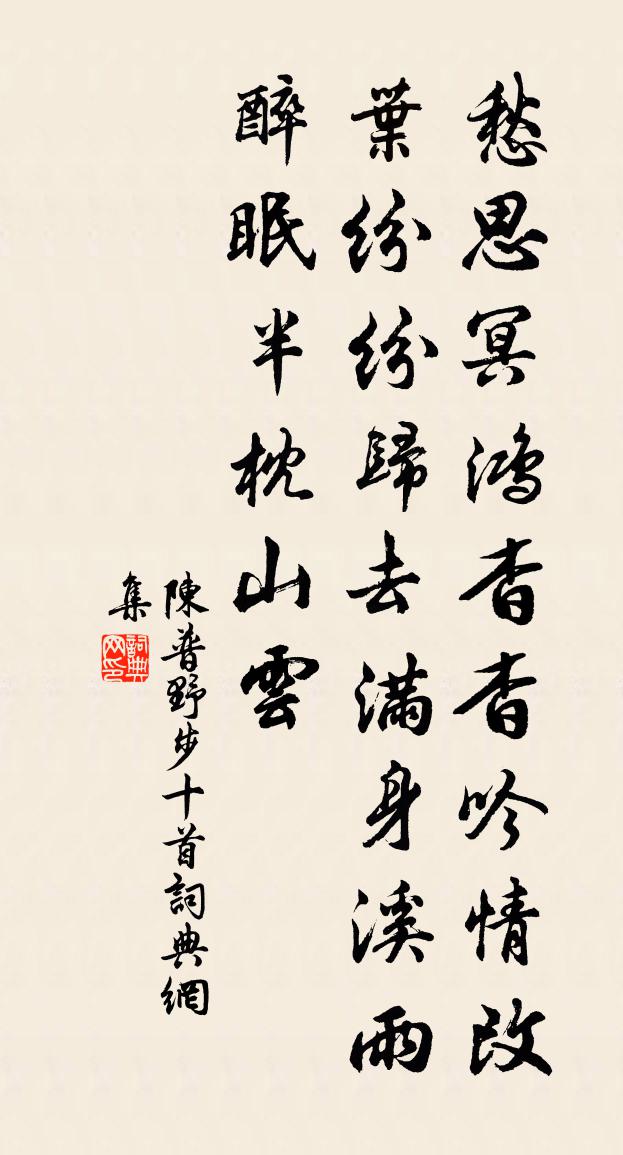 愁思冥鴻杳杳吟情敗
葉紛紛歸去滿身溪雨
醉眠半枕山雲
陳普野步十首詞典網
集
詞典
网印